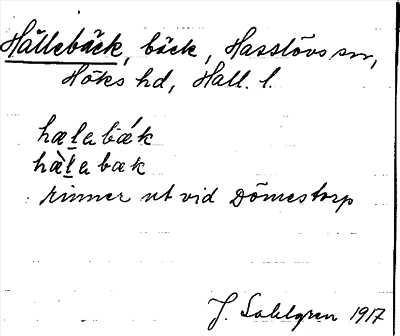 Hållebäck, bäck, Hasslövs sn,
Höks hd, Hall. l.
hæl̠abǽk
hæ̀l̠abæk
rinner ut vid Dömestorp
J. Sahlgren 1917